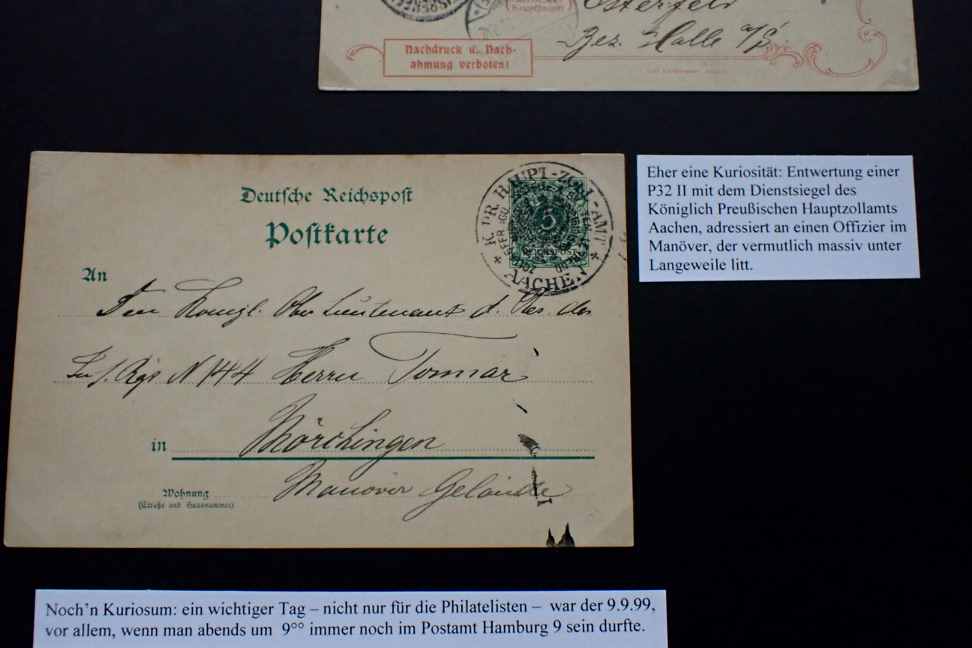 Osterfeld
Bez. Halle a/S.
Nachdruck u. Nach-
ahmung verboten!
Eher eine Kuriosität: Entwertung einer
P32 II mit dem Dienstsiegel des
Königlich Preußischen Hauptzollamts
Aachen, adressiert an einen Offizier im
Manöver, der vermutlich massiv unter
Langeweile litt.
Deutsche Reichspost
Postkarte
K. PR. HAUPT-ZOLL-AMT
5
* AACHEN *
An
Den Königl. Ober Lieutenant d. Res. des
Inf. Rgs N 144 Herrn
in Mörchingen
Wohnung Manöver Gelände
(Straße und Hausnummer)
Noch'n Kuriosum: ein wichtiger Tag – nicht nur für die Philatelisten – war der 9.9.99,
vor allem, wenn man abends um 9°° immer noch im Postamt Hamburg 9 sein durfte.